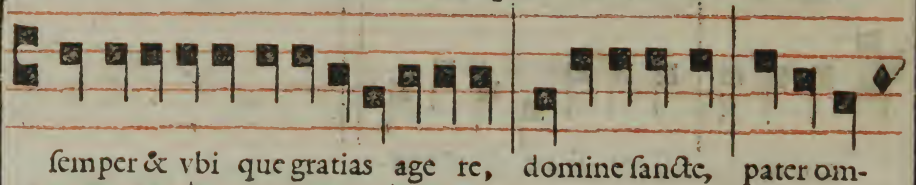 ſemper & vbi que gratias age re, domine ſancte, pater om-